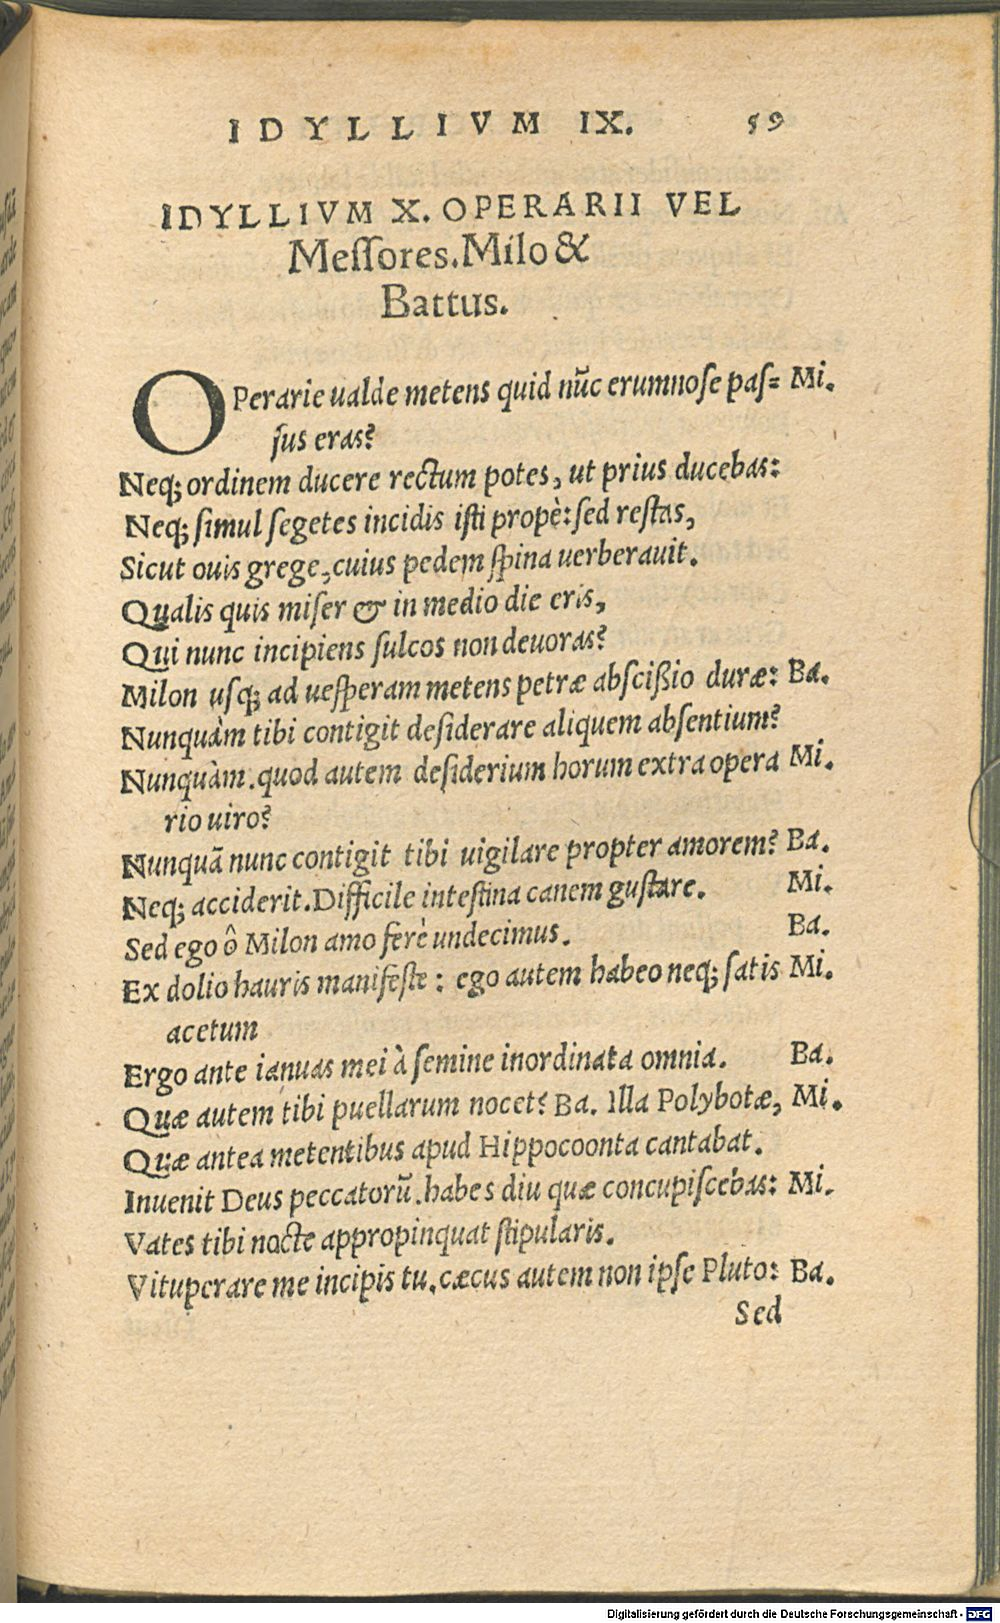 IDYLLIVM IX. 59
IDYLLIVM X. OPERARII VEL
Meſſores. Milo &
Battus.
OPerarie ualde metens quid nũc erumnoſe paſ= Mi.
ſus eras?
Neq; ordinem ducere rectum potes, ut prius ducebas:
Neq; ſimul ſegetes incidis iſti propè: ſed reſtas,
Sicut ouis grege, cuius pedem ſpina uerberauit.
Qualis quis miſer & in medio die eris,
Qui nunc incipiens ſulcos non deuoras?
Milon uſq; ad ueſperam metens petræ abſcißio duræ: Ba.
Nunquàm tibi contigit deſiderare aliquem abſentium?
Nunquàm. quod autem deſiderium horum extra opera Mi.
rio uiro?
Nunquã nunc contigit tibi uigilare propter amorem? Ba.
Neq; acciderit. Difficile inteſtina canem guſtare. Mi.
Sed ego ô Milon amo ferè undecimus. Ba.
Ex dolio hauris manifeſte: ego autem habeo neq; ſatis Mi.
acetum
Ergo ante ianuas mei à ſemine inordinata omnia. Ba.
Quæ autem tibi puellarum nocet? Ba. Illa Polybotæ, Mi.
Quæ antea metentibus apud Hippocoonta cantabat.
Inuenit Deus peccatorũ. habes diu quæ concupiſcebas: Mi.
Vates tibi nocte appropinquat ſtipularis.
Vituperare me incipis tu. cæcus autem non ipſe Pluto: Ba.
Sed
Digitalisierung gefördert durch die Deutsche Forschungsgemeinschaft - DFG